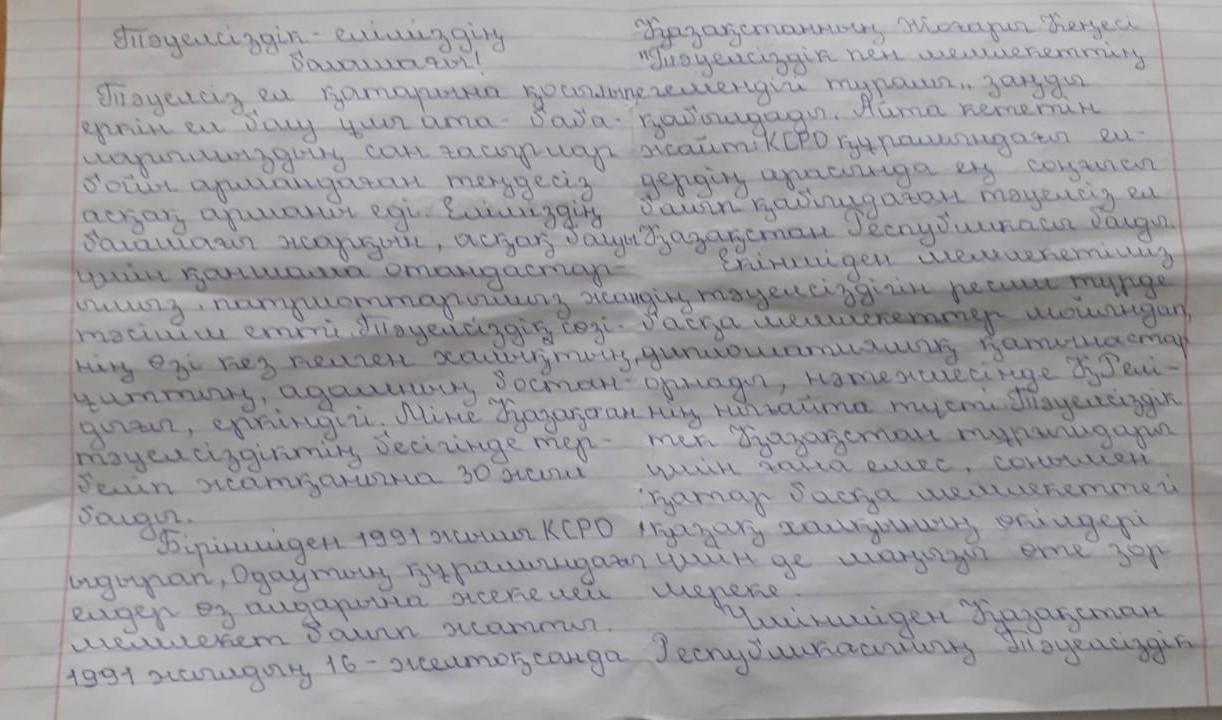 Тәуелсіздік - еліміздің
болашағы!
Тәуелсіз ел қатарына қосылып
еркін ел болу үшін ата - баба-
ларымыздың сан ғасырлар
бойы армандаған теңдесіз
асқақ арманы еді. Еліміздің
болашағы жарқын, асқақ болуы
үшін қаншама отандастар-
ымыз, патриоттарымыз жан
тәсілім етті. Тәуелсіздік сөзі-
нің өзі кез келген халықтың,
ұлттың, адамның бостан-
дығы, еркіндігі. Міне Қазақстан
тәуелсіздіктің бесігінде тер-
беліп жатқанына 30 жыл
болды.
Біріншіден 1991 жылы КСРО
ыдырап, Одақтың құрамындағы
елдер өз алдарына жекелей
мемлекет болып жатты.
1991 жылдың 16 - желтоқсанда
Қазақстанның Жоғары Кеңесі
"Тәуелсіздік пен мемлекеттің
егемендігі туралы" заңды
қабылдады. Айта кететін
жайт: КСРО құрамындағы ел-
дердің арасында ең соңғысы
болып қабылдаған тәуелсіз ел
Қазақстан Республикасы болды.
Екіншіден мемлекетіміз
дің тәуелсіздігін ресми түрде
басқа мемлекеттер мойындап,
дипломатиялық қатынастар
орнады, нәтежиесінде ҚРелі-
нің нығайта түсті. Тәуелсіздік
тек Қазақстан тұрғындары
үшін ғана емес, сонымен
қатар басқа мемлекеттегі
қазақ халқының өкілдері
үшін де маңызы өте зор
мереке.
Үшіншіден Қазақстан
Республикасының Тәуелсіздік